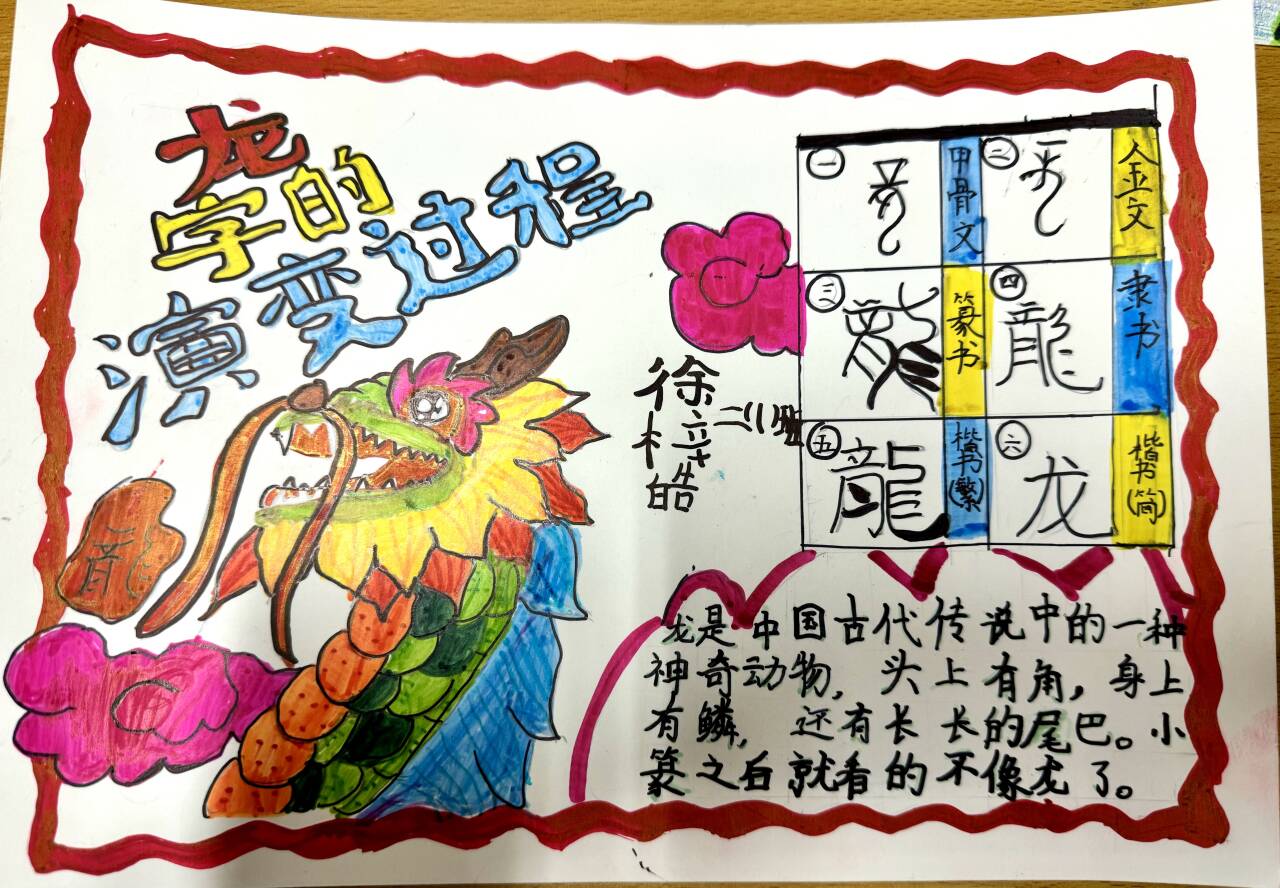 龙
字的
演变过程
徐立皓
二(1)班
一 甲骨文
二 金文
三 龍 篆书
四 龍 隶书
五 龍 楷书(繁)
六 龙 楷书(简)
龍
龙是中国古代传说中的一种
神奇动物，头上有角，身上
有鳞，还有长长的尾巴。小
篆之后就看的不像龙了。